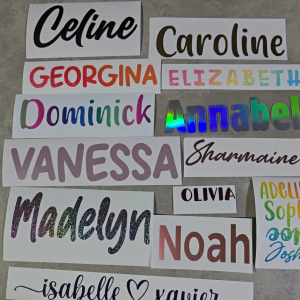 Celine
Caroline
GEORGINA
ELIZABETH
Dominick
Annabel
VANESSA
Sharmaine
OLIVIA
Madelyn
Noah
isabelle ♡ xavier